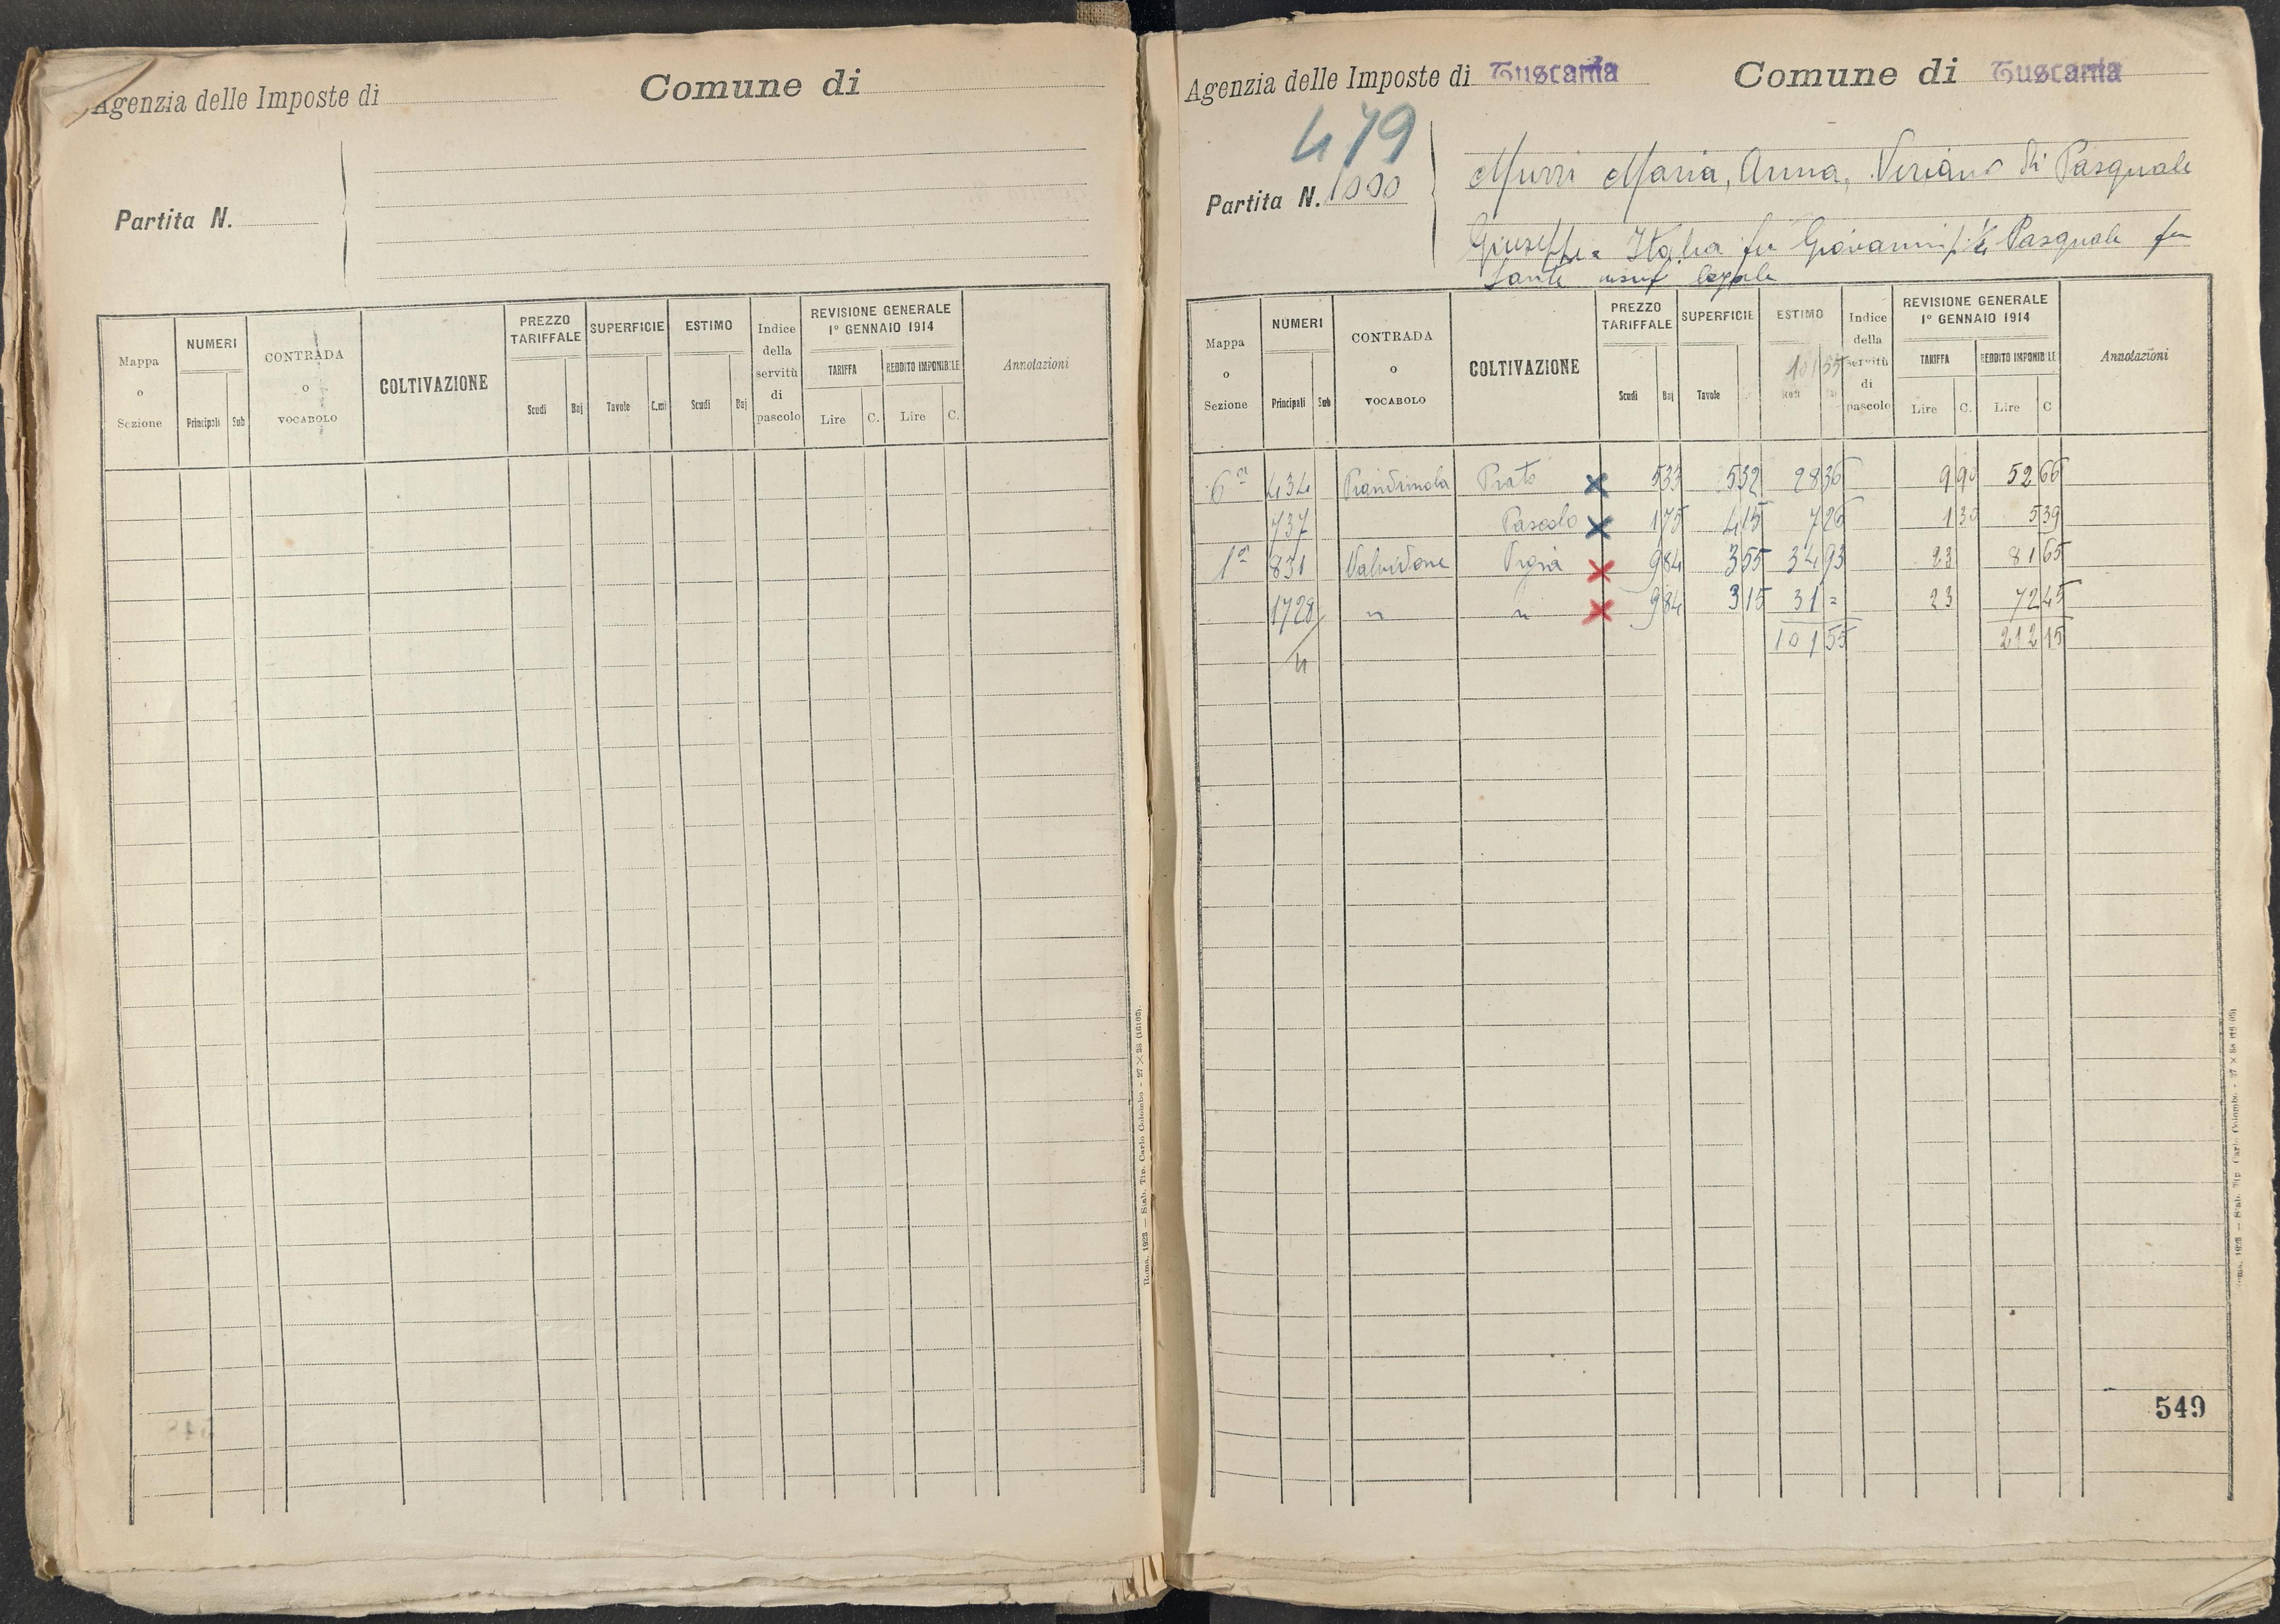 Agenzia delle Imposte di
Comune di
Partita N.
Mappa o Sezione
NUMERI
Principali Sub
CONTRADA o VOCABOLO
COLTIVAZIONE
PREZZO TARIFFALE
Scudi Baj
SUPERFICIE
Tavole C.mi
ESTIMO
Scudi Baj
Indice della servitù di pascolo
REVISIONE GENERALE
1º GENNAIO 1914
TARIFFA
Lire C.
REDDITO IMPONIBILE
Lire C.
Annotazioni
Roma, 1923 — Stab. Tip. Carlo Colombo - 27 × 38 (16103).
Agenzia delle Imposte di Tuscania
Comune di Tuscania
479
Partita N. 1000
Murri Maria, Anna, Veriano di Pasquale
Giuseppe Italia fu Giovanni p. ½ Pasquale fu
Sante usuf legale
Mappa o Sezione
NUMERI
Principali Sub
CONTRADA o VOCABOLO
COLTIVAZIONE
PREZZO TARIFFALE
Scudi Baj
SUPERFICIE
Tavole
ESTIMO
101 55
Indice della servitù di pascolo
REVISIONE GENERALE
1º GENNAIO 1914
TARIFFA
Lire C.
REDDITO IMPONIBILE
Lire C
Annotazioni
6ª 434 Prato × 5 33 5 32 28 36 9 90 52 66
737 Pascolo × 1 75 4 15 7 26 1 30 5 39
1ª 831 Valvidone Vigna × 9 84 3 55 34 93 23 81 65
1728/4 " " × 9 84 3 15 31 = 23 72 45
101 55 212 15
549
Roma, 1923 — Stab. Tip. Carlo Colombo - 27 × 38 (16103)